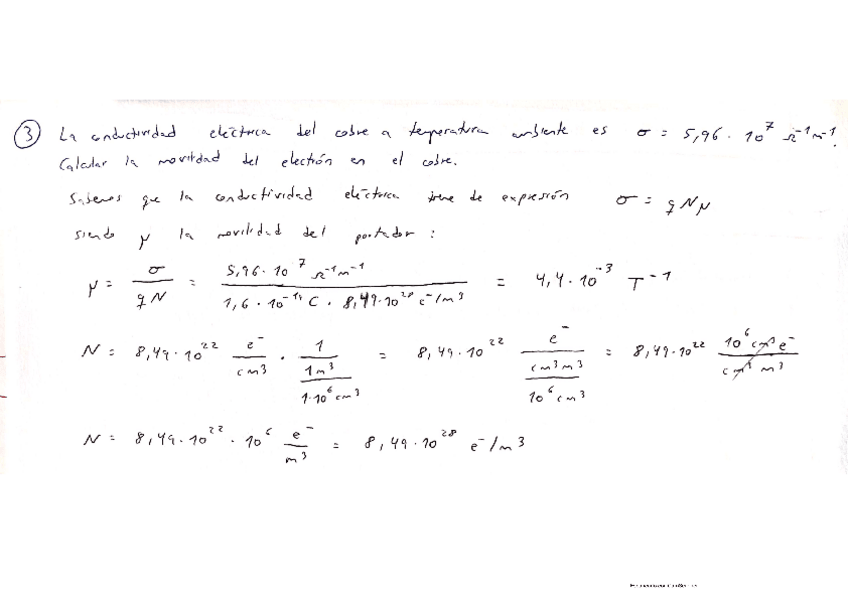 ③ La conductividad eléctrica del cobre a temperatura ambiente es σ = 5,96 · 10⁷ Ω⁻¹m⁻¹.
Calcular la movilidad del electrón en el cobre.
Sabemos que la conductividad eléctrica tiene de expresión σ = qNμ
siendo μ la movilidad del portador:
μ = σ / qN = 5,96 · 10⁷ Ω⁻¹m⁻¹ / 1,6 · 10⁻¹⁹ C · 8,49 · 10²⁸ e⁻/m³ = 4,4 · 10⁻³ T⁻¹
N = 8,49 · 10²² e⁻/cm³ · 1 / (1m³ / 1·10⁶ cm³) = 8,49 · 10²² e⁻ / (cm³ m³ / 10⁶ cm³) = 8,49 · 10²² 10⁶ cm³ e⁻ / cm³ m³
N = 8,49 · 10²² · 10⁶ e⁻/m³ = 8,49 · 10²⁸ e⁻/m³